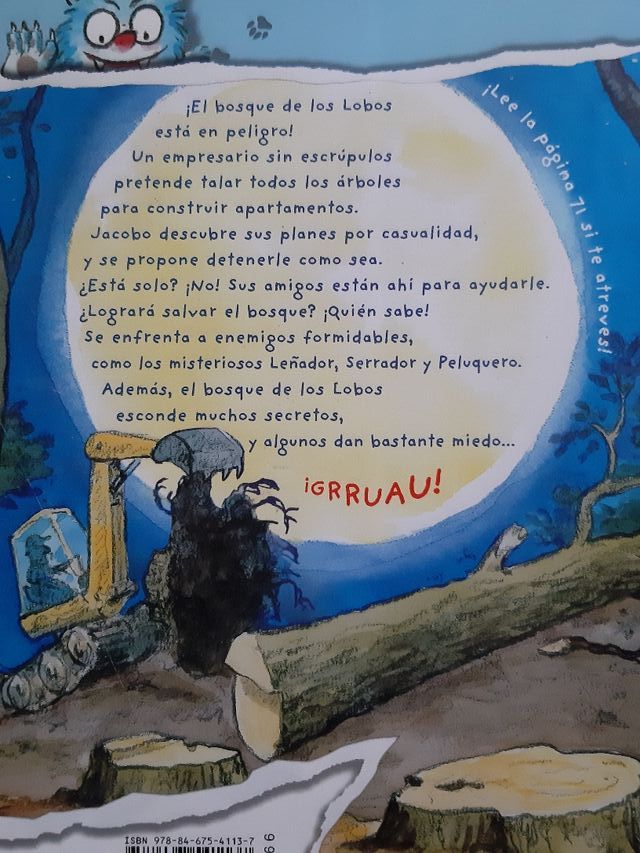 ¡El bosque de los Lobos
está en peligro!
Un empresario sin escrúpulos
pretende talar todos los árboles
para construir apartamentos.
Jacobo descubre sus planes por casualidad,
y se propone detenerle como sea.
¿Está solo? ¡No! Sus amigos están ahí para ayudarle.
¿Logrará salvar el bosque? ¡Quién sabe!
Se enfrenta a enemigos formidables,
como los misteriosos Leñador, Serrador y Peluquero.
Además, el bosque de los Lobos
esconde muchos secretos,
y algunos dan bastante miedo...
¡GRRUAU!
¡Lee la página 71 si te atreves!
ISBN 978-84-675-4113-7